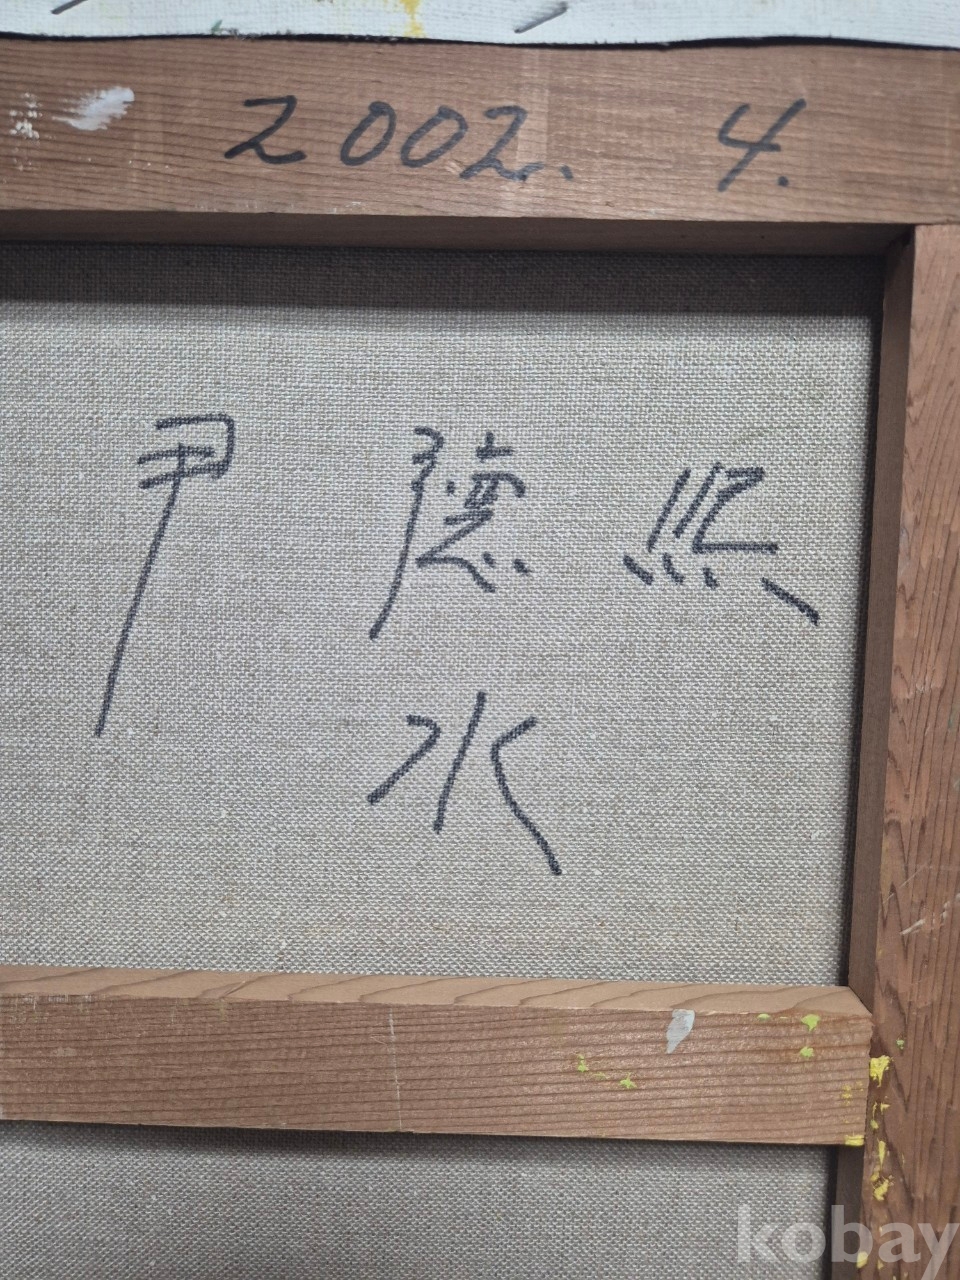 2002. 4.
尹 德 熙
水
kobay